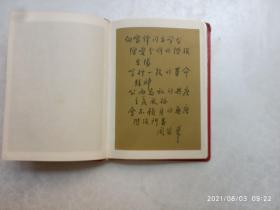 向雷锋同志学习
憎爱分明的阶级
立场
言行一致的革命
精神
公而忘私的共产
主义风格
奋不顾身的无产
阶级斗志
周恩来
2021/08/03 09:22